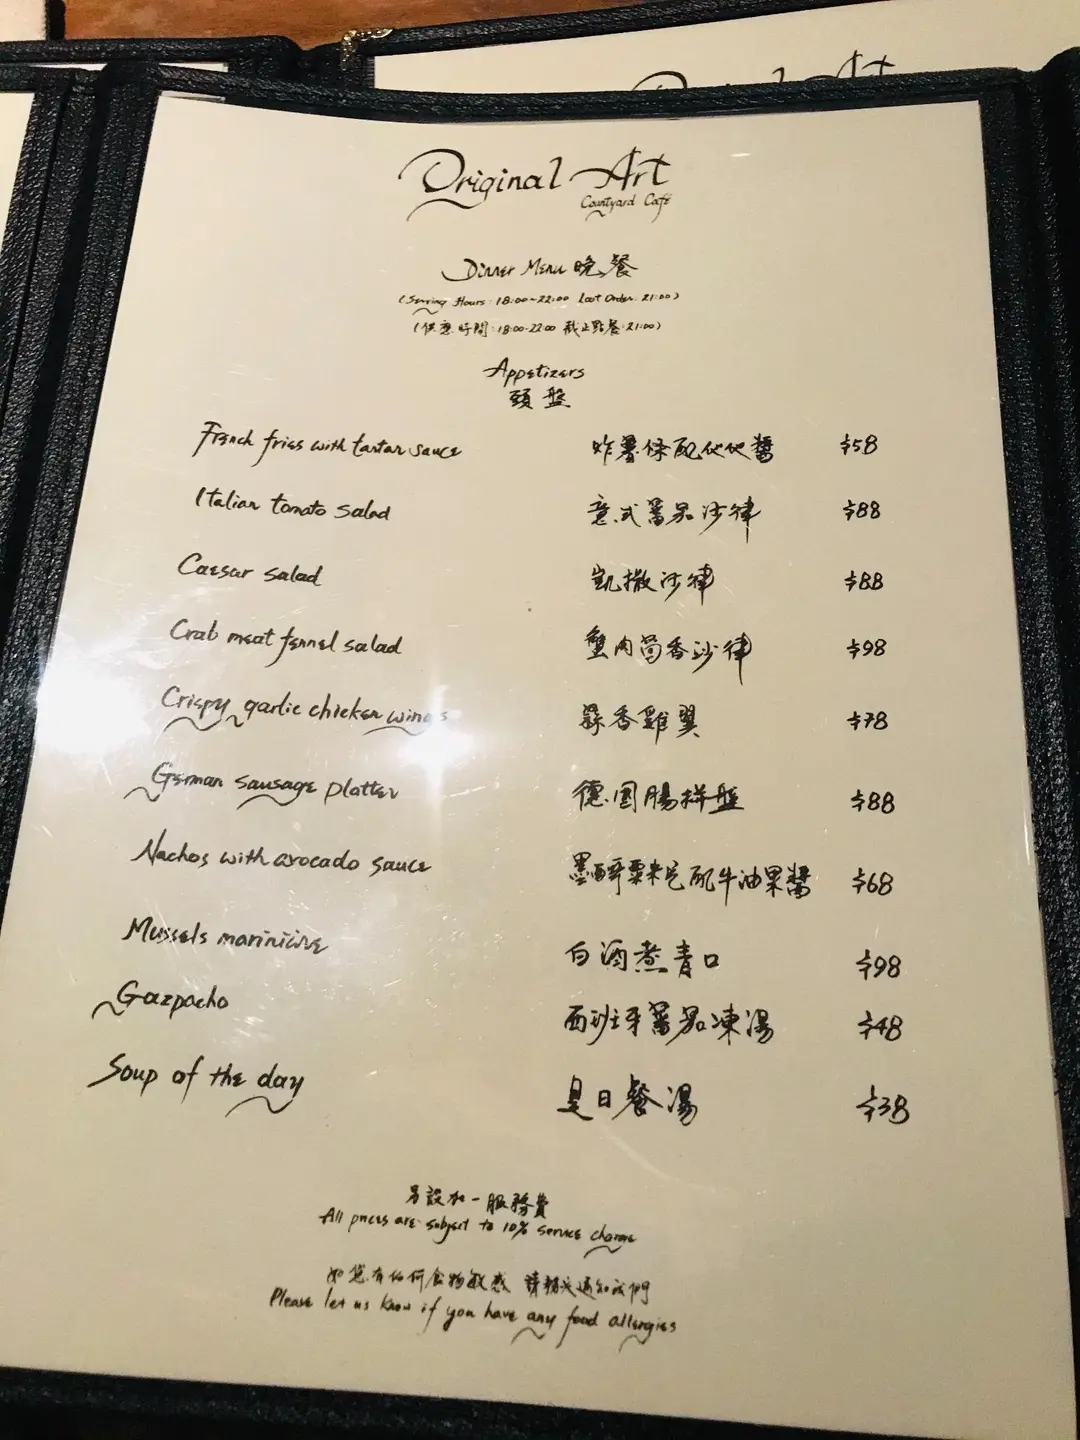 Original Art
Original Art
Courtyard Café
Dinner Menu 晚餐
(Serving Hours: 18:00~22:00 Last Order: 21:00)
(供應時間:18:00-22:00 截止點餐:21:00)
Appetizers
頭盤
French fries with tartar sauce 炸薯條配他他醬 $58
Italian tomato salad 意式蕃茄沙律 $88
Caesar salad 凱撒沙律 $88
Crab meat fennel salad 蟹肉茴香沙律 $98
Crispy garlic chicken wings 蒜香雞翼 $78
German sausage platter 德國腸拼盤 $88
Nachos with avocado sauce 墨西哥粟米片配牛油果醬 $68
Mussels marinière 白酒煮青口 $98
Gazpacho 西班牙蕃茄凍湯 $48
Soup of the day 是日餐湯 $38
另設加一服務費
All prices are subject to 10% service charge
如您有任何食物敏感 請預先通知我們
Please let us know if you have any food allergies